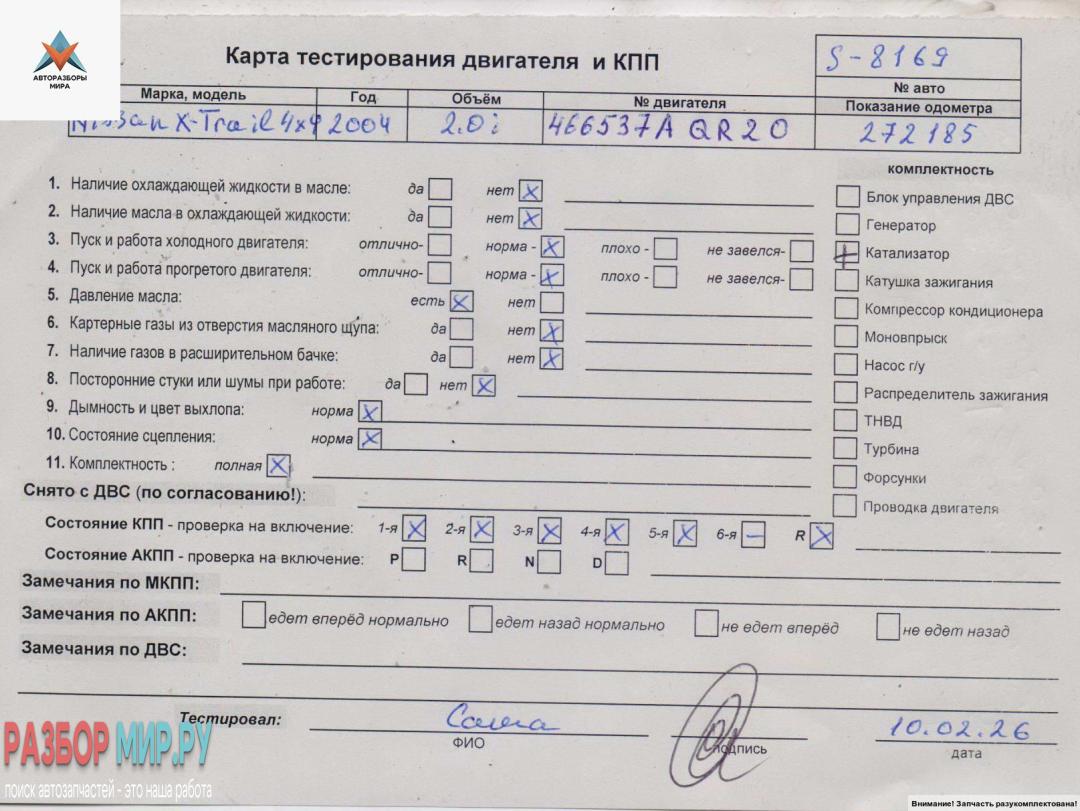 АВТОРАЗБОРЫ
МИРА
Карта тестирования двигателя и КПП
S-8169
№ авто
Марка, модель Год Объём № двигателя Показание одометра
Nissan X-Trail 4x4 2004 2.0i 466537A QR20 272185
комплектность
1. Наличие охлаждающей жидкости в масле: да нет X
2. Наличие масла в охлаждающей жидкости: да нет X
3. Пуск и работа холодного двигателя: отлично- норма - X плохо - не завелся-
4. Пуск и работа прогретого двигателя: отлично- норма - X плохо - не завелся-
5. Давление масла: есть X нет
6. Картерные газы из отверстия масляного щупа: да нет X
7. Наличие газов в расширительном бачке: да нет X
8. Посторонние стуки или шумы при работе: да нет X
9. Дымность и цвет выхлопа: норма X
10. Состояние сцепления: норма X
11. Комплектность : полная X
Блок управления ДВС
Генератор
+ Катализатор
Катушка зажигания
Компрессор кондиционера
Моновпрыск
Насос г/у
Распределитель зажигания
ТНВД
Турбина
Форсунки
Проводка двигателя
Снято с ДВС (по согласованию!):
Состояние КПП - проверка на включение: 1-я X 2-я X 3-я X 4-я X 5-я X 6-я – R X
Состояние АКПП - проверка на включение: P R N D
Замечания по МКПП:
Замечания по АКПП: едет вперёд нормально едет назад нормально не едет вперёд не едет назад
Замечания по ДВС:
Тестировал: 10.02.26
ФИО подпись дата
РАЗБОР МИР.РУ
поиск автозапчастей - это наша работа
Внимание! Запчасть разукомплектована!